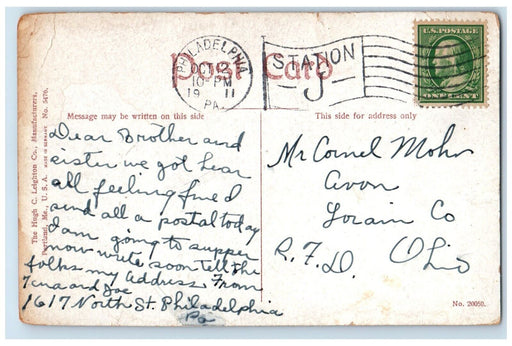 Post Card
PHILADELPHIA
OCT 2
10-PM
19 11
PA.
STATION
J
U.S. POSTAGE
ONE CENT
Message may be written on this side
This side for address only
The Hugh C. Leighton Co., Manufacturers,
Portland, Me., U. S. A. MADE IN GERMANY No. 5470
Dear Brother and
sister we got hear
all feeling fine I
send all a postal today
I am going to supper
now write soon tell the
folks my address. From
and Joe
1617 North St. Philadelphia
Pa
Mr Cornel Mohr
Avon
Lorain Co
R.F.D. Ohio
No. 20050.